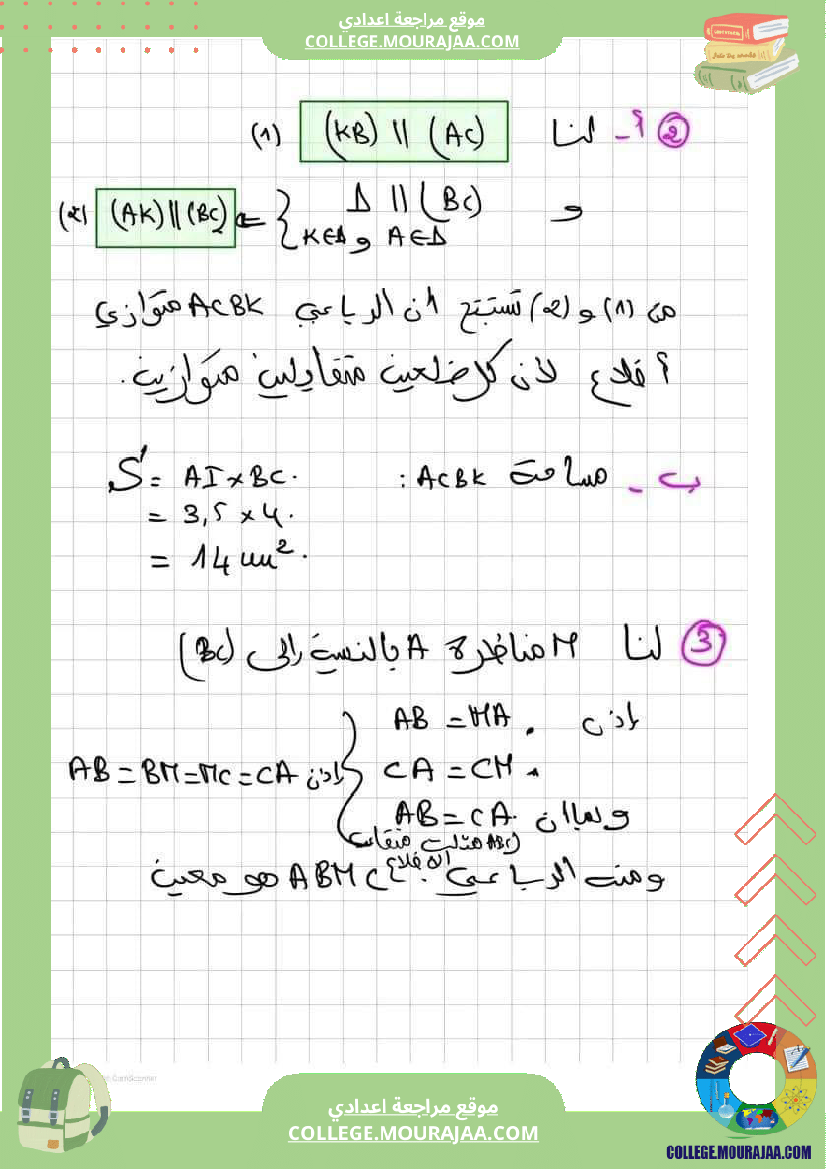 موقع مراجعة اعدادي
COLLEGE.MOURAJAA.COM
② أ - لنا (KB) // (AC) (1)
و Δ // (BC)
K∈Δ و A∈Δ
⇐ (AK) // (BC) (2)
من (1) و (2) نستنتج ان الرباعي ACBK متوازي
أضلاع لأن كل ضلعين متقابلين متوازيين.
ب - مساحة ACBK :
S = AI × BC.
= 3,5 × 4.
= 14 cm².
③ لنا M مناظرة A بالنسبة إلى (BC)
إذن . AB = MA
. CA = CM
وبما ان AB = CA.
(ABC مثلث متقايس
الاضلاع)
اذن AB = BM = MC = CA
ومنه الرباعي ABMC هو معين
CamScanner
موقع مراجعة اعدادي
COLLEGE.MOURAJAA.COM
COLLEGE.MOURAJAA.COM